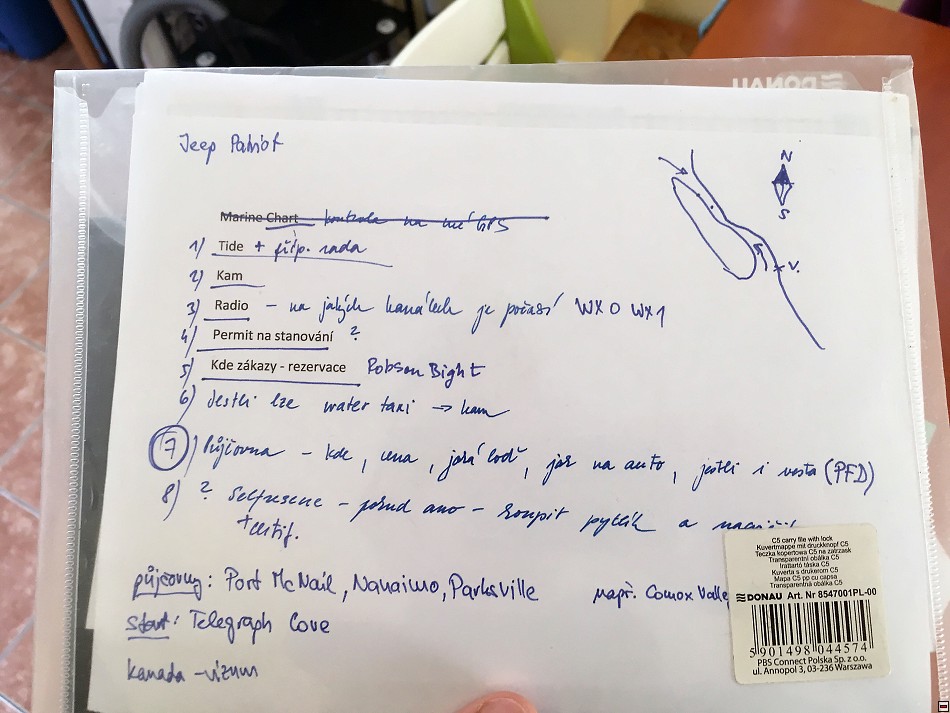 DONAU
Jeep Patriot
N
S
V.
Marine Chart kontrola na mé GPS
1) Tide + příp. rada
2) Kam
3) Radio – na jakých kanálech je počasí WX0 WX1
4) Permit na stanování ?
5) Kde zákazy - rezervace Robson Bight
6) Jestli lze water taxi → kam
7) Půjčovna – kde, cena, jaká loď, jak na auto, jestli i vesta (PFD)
8) ? Selfrescue – pokud ano – koupit pytlík a
+ certif.
půjčovny: Port McNeil, Nanaimo, Parksville např. Comox Valle
start: Telegraph Cove
Kanada – vízum
C5 carry file with lock
Kuvertmappe mit druckknopf C5
Teczka kopertowa C5 na zatrzask
Transparentní obálka C5
Irattartó táska C5
Kuverta s drukerom C5
Mapa C5 pp cu capsa
Transparentná obálka C5
DONAU Art. Nr 8547001PL-00
5 901498 044574
PBS Connect Polska Sp. z o.o.
ul. Annopol 3, 03-236 Warszawa